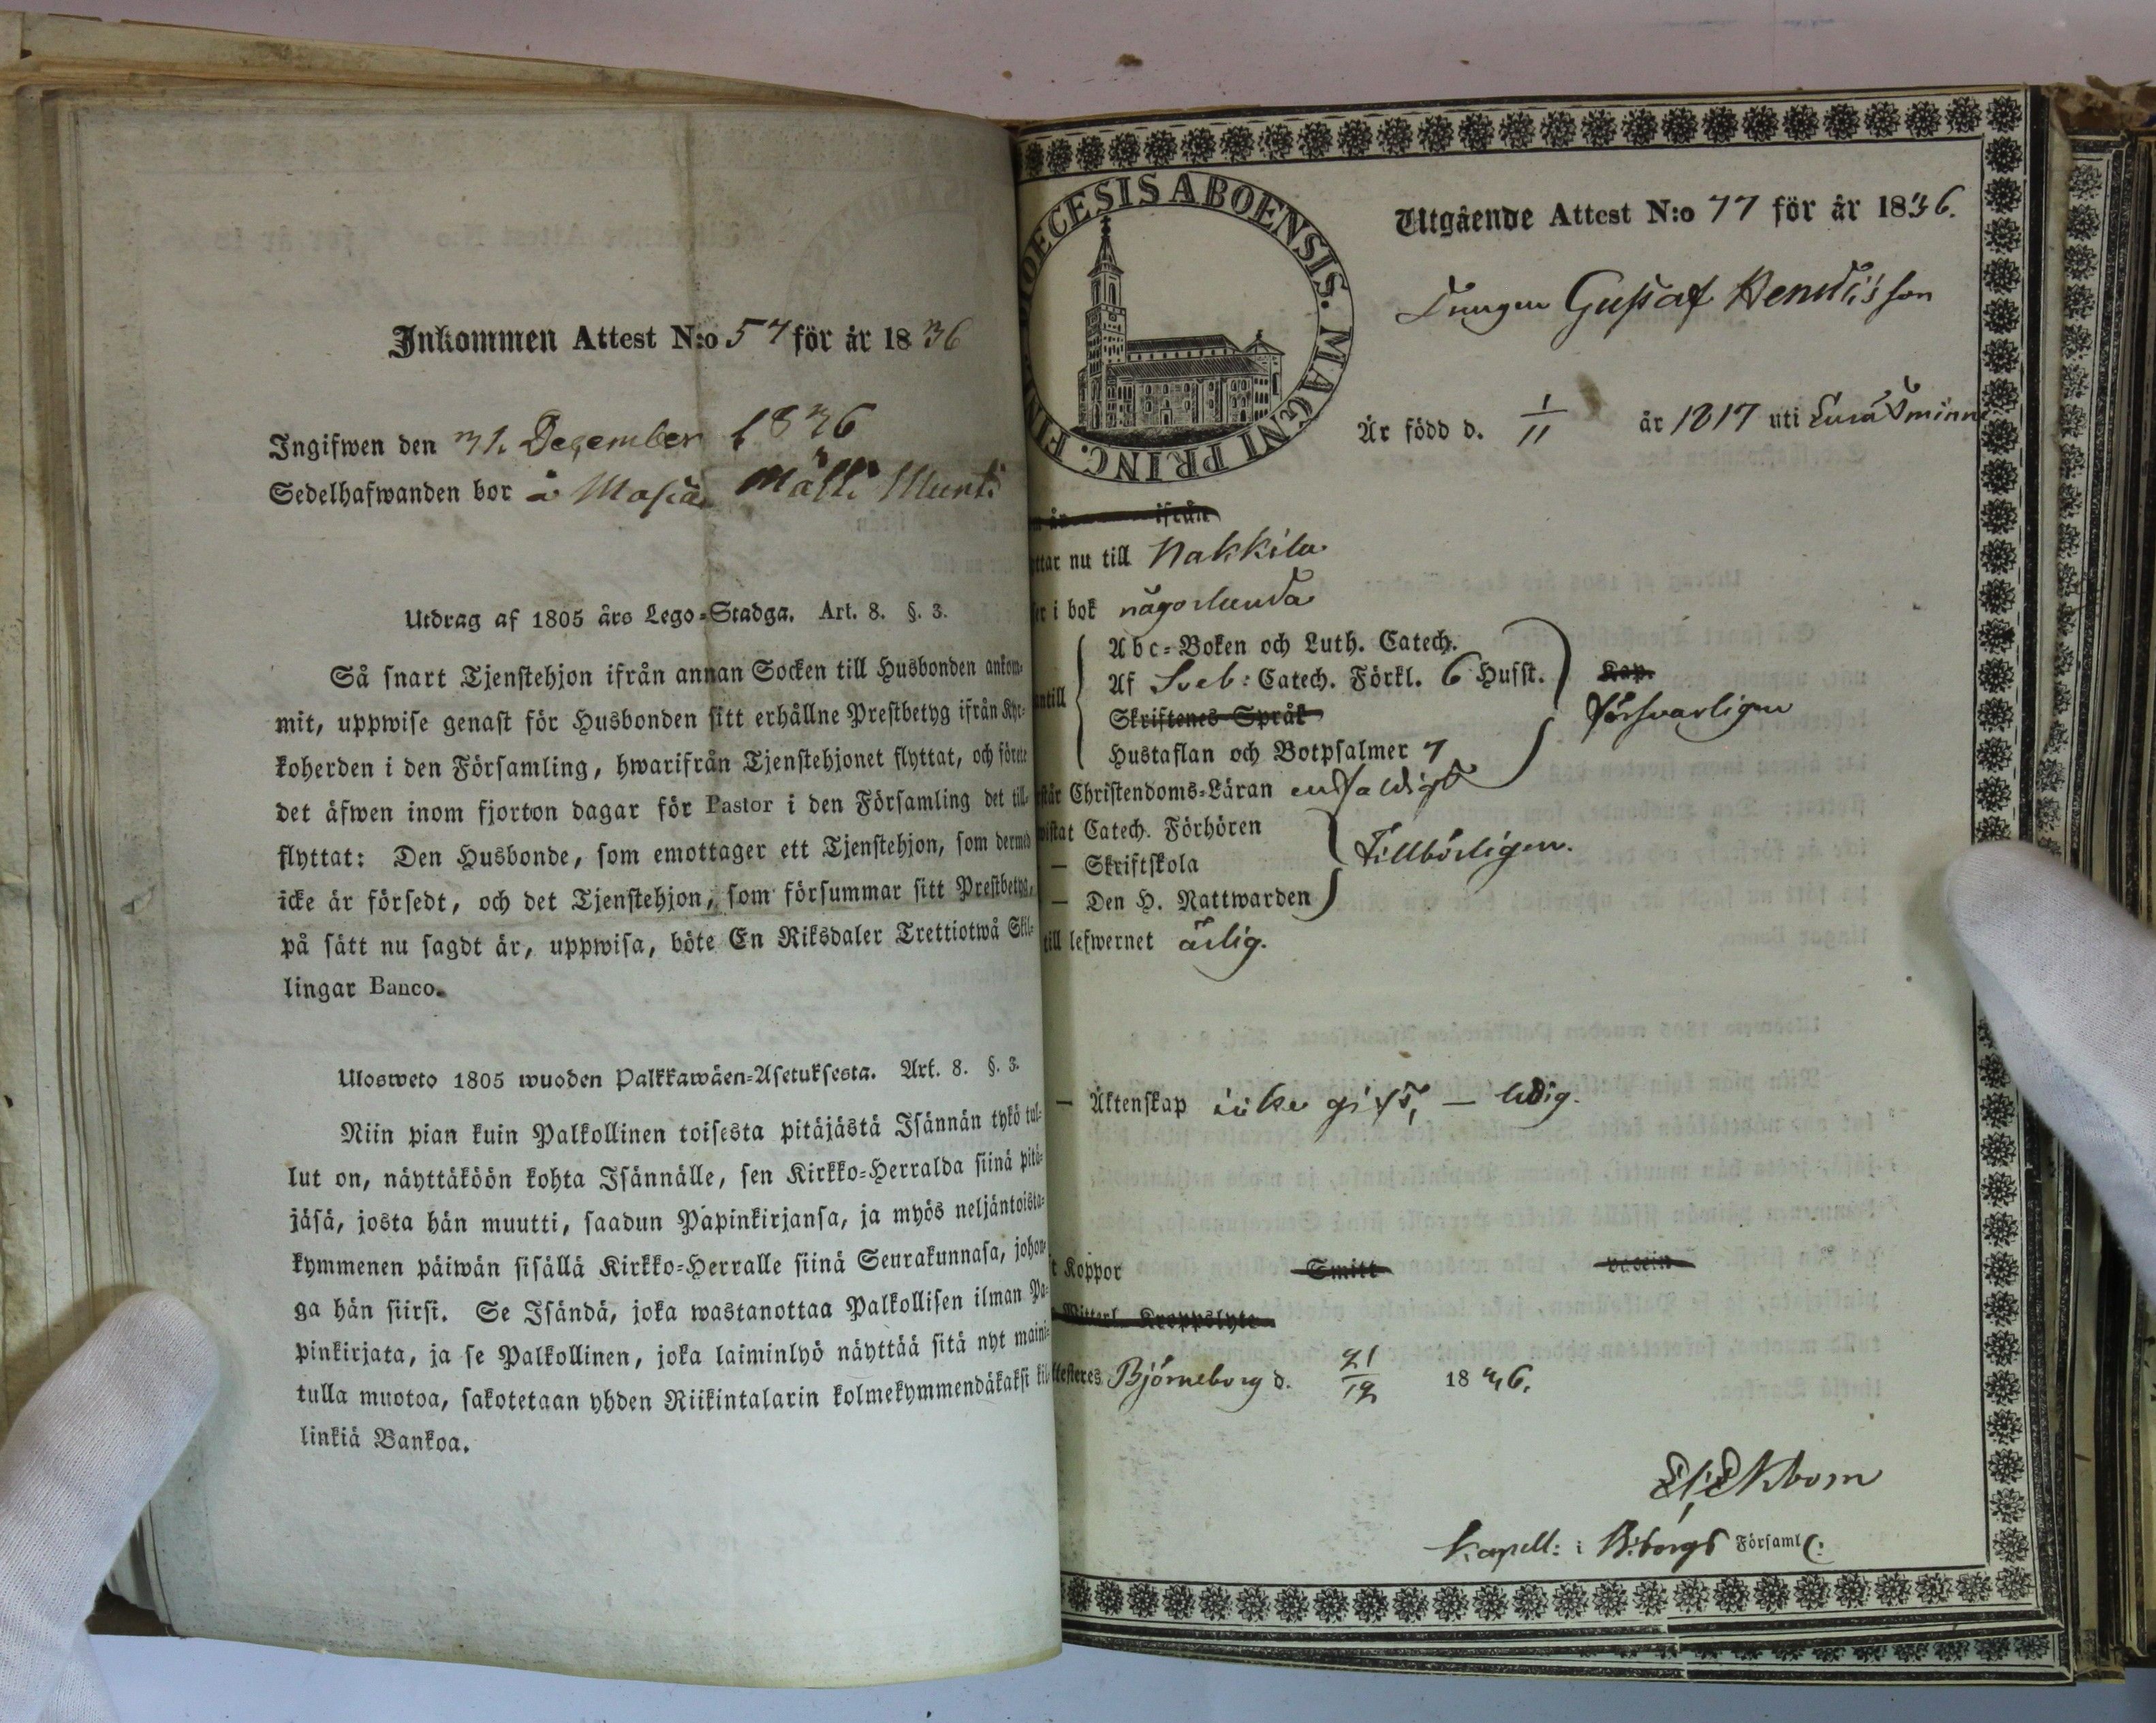 Inkommen Attest N:o 57 för år 1836
Ingifwen den 31. December 1836
Sedelhafwanden bor å Masia Mälli Munti
Utdrag af 1805 års Lego-Stadga. Art. 8. §. 3.
Så snart Tjenstehjon ifrån annan Socken till Husbonden ankom-
mit, uppwise genast för Husbonden sitt erhållne Prestbetyg ifrån Kyr-
koherden i den Församling, hwarifrån Tjenstehjonet flyttat, och förete
det äfwen inom fjorton dagar för Pastor i den Församling det till-
flyttat: Den Husbonde, som emottager ett Tjenstehjon, som dermed
icke är försedt, och det Tjenstehjon, som försummar sitt Prestbetyg,
på sätt nu sagdt är, uppwisa, böte En Riksdaler Trettiotwå Skil-
lingar Banco.
Ulosweto 1805 wuoden Palkkawäen-Asetuksesta. Art. 8. §. 3.
Niin pian kuin Palkollinen toisesta pitäjästä Isännän tykö tul-
lut on, näyttäköön kohta Isännälle, sen Kirkko-Herralda siinä pitä-
jäsä, josta hän muutti, saadun Papinkirjansa, ja myös neljäntoista-
kymmenen päiwän sisällä Kirkko-Herralle siinä Seurakunnasa, johon-
ga hän siirsi. Se Isändä, joka wastanottaa Palkollisen ilman Pa-
pinkirjata, ja se Palkollinen, joka laiminlyö näyttää sitä nyt maini-
tulla muotoa, sakotetaan yhden Riikintalarin kolmekymmendäkaksi kil-
linkiä Bankoa.
DIOECESIS ABOENSIS. MAGNI PRINC. FIN
Utgående Attest N:o 77 för år 1836.
Drengen Gustaf Hendrisson
Är född d. 1/11 år 1817 uti Euraåminne
ifrån
ttar nu till Nakkila
er i bok någorlunda
antill
Abc-Boken och Luth. Catech.
Af Sveb: Catech. Förkl. 6 Husst. Kap.
Skriftenes Språk försvarligen
Hustaflan och Botpsalmer 7
står Christendoms-Läran enfaldigt
wistat Catech. Förhören
— Skriftskola Tillbörligen.
— Den H. Nattwarden
till lefwernet ärlig.
— Äktenskap icke gift, — ledig.
t Koppor Smitt vaccin
Wittert. Kroppslyte
ttesteres Björneborg d. 21/12 1836.
El: Ekbom
Kapell: i B:borgs Församl: